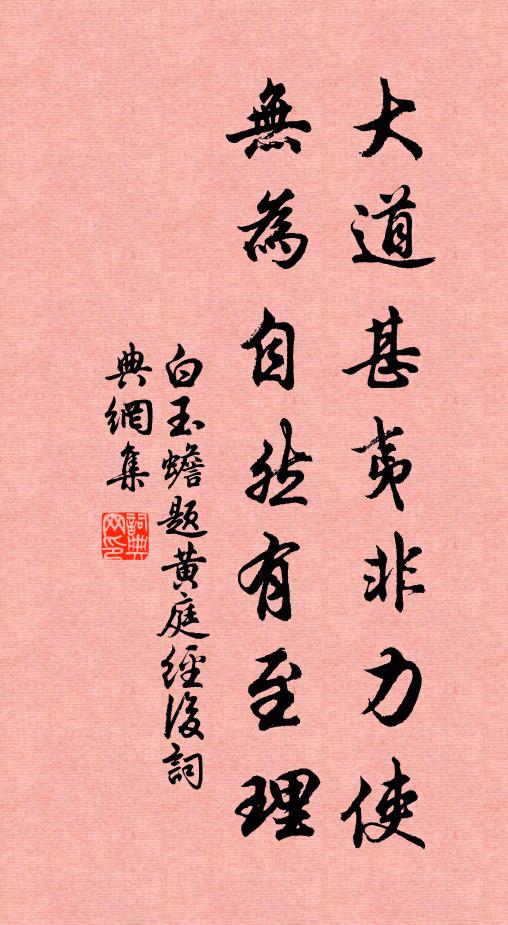 大道甚夷非力使
無為自然有至理
白玉蟾題黃庭經後詞
典網集
詞典網印